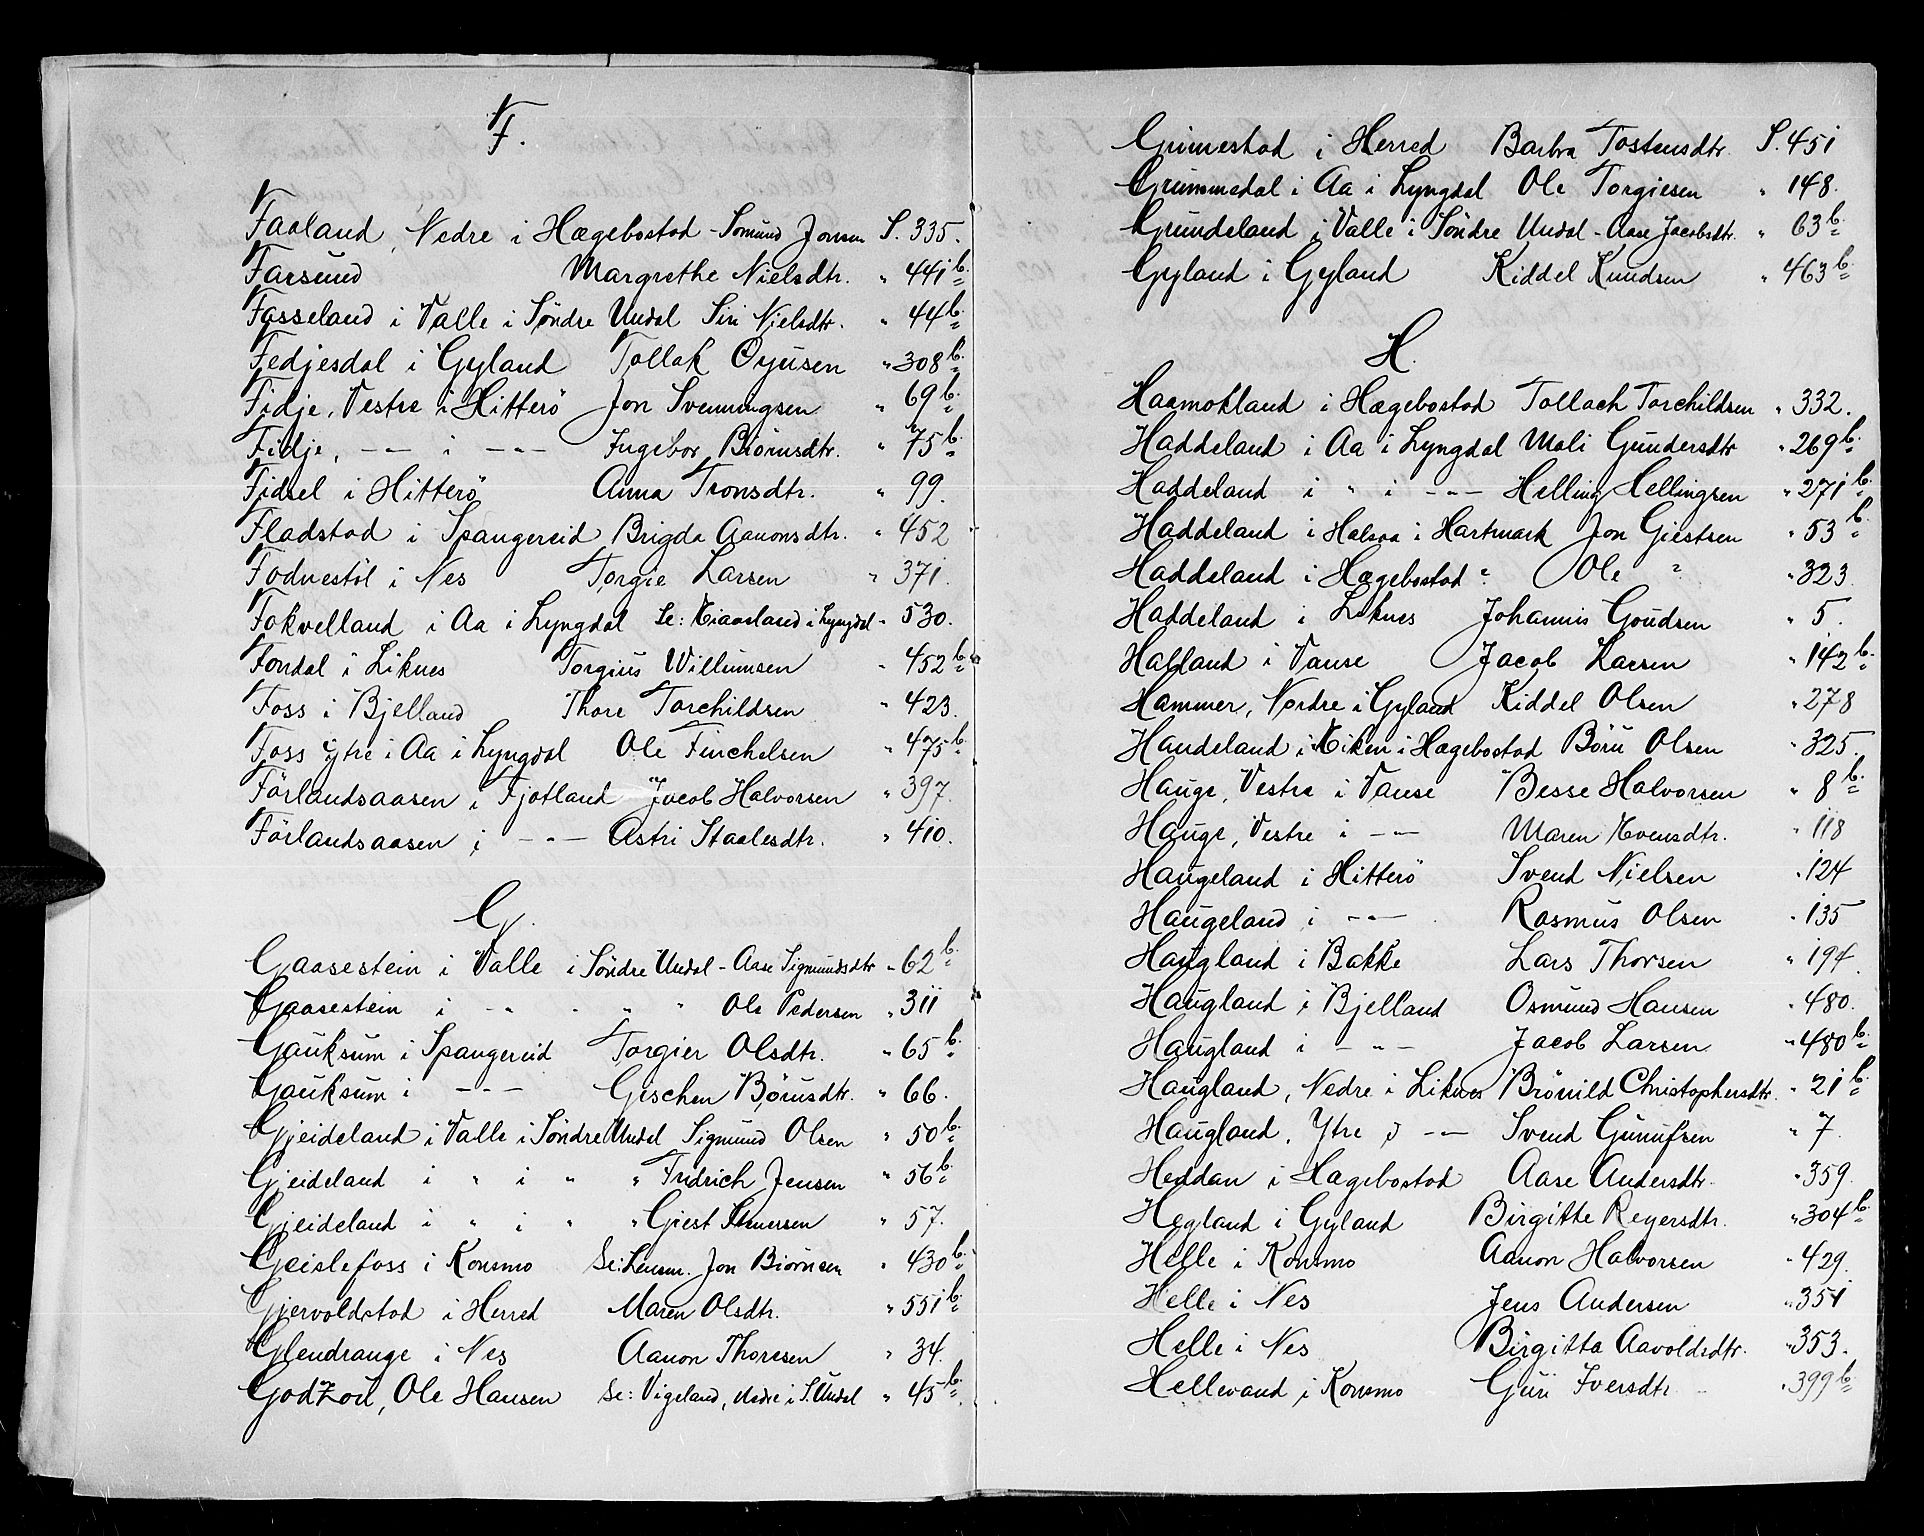 F.
Faaland, Nedre i Hægebostad - Somund Jonsen S. 335.
Farsund Margrethe Nielsdtr. " 441b.
Fasseland i Valle i Søndre Undal Siri Nielsdtr. " 44b.
Fedjesdal i Gyland Tollak Oyusen " 308b.
Fidje, Vestre i Hitterö Jon Svenningsen " 69b.
Fidje, -"- i -"- Ingebor Biörnsdtr. " 75b.
Fidsel i Hitterö Anna Tronsdtr. " 99.
Fladstad i Spangereid Brigda Aanonsdtr. " 452
Fodnestöl i Nes Torgie Larsen " 371.
Fokvelland i Aa i Lyngdal Se: Kiaasland i Lyngdal " 530.
Fondal i Liknes Torgius Willumsen " 452b.
Foss i Bjelland Thore Torchildsen " 423.
Foss Ytre i Aa i Lyngdal Ole Finchelsen " 475b.
Förlandsaasen i Fjotland Jacob Halvorsen " 397.
Förlandsaasen i -"- Astri Staalesdtr. " 410.
G.
Gaasestein i Valle i Söndre Undal - Aase Sigmundsdtr " 62b.
Gaasestein i " " " Ole Pedersen " 311
Gauksum i Spangereid Torgier Olsdtr. " 65b.
Gauksum i -"- Gischen Bjørusdtr. " 66.
Gjeideland i Valle i Söndre Undal Sigmund Olsen " 50b.
Gjeideland i " i " " Fridrich Jensen " 56b.
Gjeideland i " i " " Giest Simersen " 57.
Geislefoss i Konsmo Se: Lensm. Jon Biörnsen " 430b.
Gjervoldstad i Herred Maren Olsdtr. " 551b.
Glendrange i Nes Aanon Thoresen " 34.
Godzou, Ole Hansen Se: Vigeland, Nedre i S. Undal " 45b.
Grimestad i Herred Barbra Tostensdtr. S. 451
Grummedal i Aa i Lyngdal Ole Torgiesen " 148.
Grundeland i Valle i Söndre Undal - Aase Jacobsdtr. " 63b.
Gyland i Gyland Kiddel Knudsen " 463b.
H.
Haamokland i Hægebostad Tollach Torchildsen " 332.
Haddeland i Aa i Lyngdal Mali Gundersdtr " 269b.
Haddeland i " i -"- Helling Hellingsen " 271b.
Haddeland i Halsaa i Hartmark Jon Giestsen " 53b.
Haddeland i Hægebostad " Ole " " 323.
Haddeland i Liknes Johannis Goudsen " 5.
Halland i Vanse Jacob Larsen " 142b.
Hammer, Nordre i Gyland Kiddel Olsen " 278
Handeland i Eiken i Hægebostad Böru Olsen " 325.
Hauge, Vestre i Vanse Besse Halvorsen " 8b.
Hauge, Vestre i -"- Maren Evensdtr. " 118
Haugeland i Hitterö Svend Nielsen " 124
Haugeland i -"- Rasmus Olsen " 135
Haugland i Bakke Lars Thorsen " 194.
Haugland i Bjelland Osmund Hansen " 480.
Haugland i -"- Jacob Larsen " 480b.
Haugland, Nedre i Liknes Brönild Christophersdtr. " 21b.
Haugland, Ytre i -"- Svend Gunufsen " 7.
Heddan i Hægebostad Aase Andersdtr. " 359.
Hegland i Gyland Birgitte Reyersdtr. " 304b.
Helle i Konsmo Aanon Halvorsen " 429.
Helle i Nes Jens Andersen " 351
Helle i Nes Birgitta Aavoldsdtr. " 353.
Hellevand i Konsmo Guri Iversdtr. " 399b.